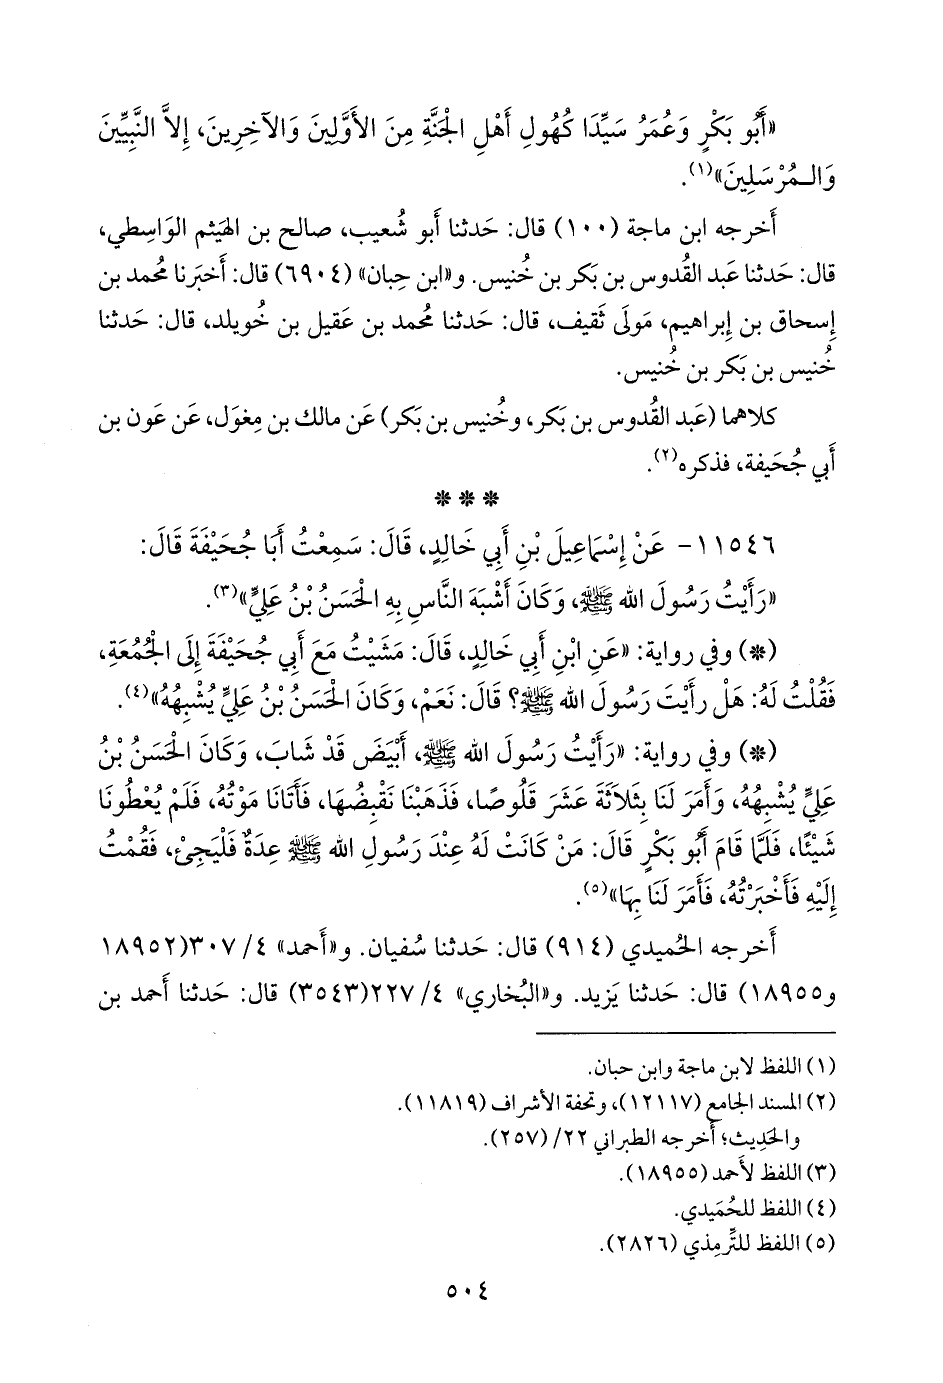 «أَبُو بَكْرٍ وَعُمَرُ سَيِّدَا كُهُولِ أَهْلِ الْجَنَّةِ مِنَ الأَوَّلِينَ وَالآخِرِينَ، إِلاَّ النَّبِيِّينَ
وَالْمُرْسَلِينَ»(١).
أَخرجه ابن ماجة (١٠٠) قال: حَدثنا أَبو شُعيب، صالح بن الهيثم الوَاسِطي،
قال: حَدثنا عَبد القُدوس بن بَكر بن خُنيس. و«ابن حِبان» (٦٩٠٤) قال: أَخبَرنا مُحمد بن
إِسحاق بن إِبراهيم، مَولَى ثَقيف، قال: حَدثنا مُحمد بن عَقيل بن خُويلد، قال: حَدثنا
خُنيس بن بَكر بن خُنيس.
كلاهما (عَبد القُدوس بن بَكر، وخُنيس بن بَكر) عَن مالك بن مِغوَل، عَن عَون بن
أَبي جُحَيفة، فذكره(٢).
* * *
١١٥٤٦- عَنْ إِسْمَاعِيلَ بْنِ أَبِي خَالِدٍ، قَالَ: سَمِعْتُ أَبَا جُحَيْفَةَ قَالَ:
«رَأَيْتُ رَسُولَ الله ﷺ، وَكَانَ أَشْبَهَ النَّاسِ بِهِ الْحَسَنُ بْنُ عَلِيٍّ»(٣).
(*) وفي رواية: «عَنِ ابْنِ أَبِي خَالِدٍ، قَالَ: مَشَيْتُ مَعَ أَبِي جُحَيْفَةَ إِلَى الْجُمُعَةِ،
فَقُلْتُ لَهُ: هَلْ رأَيْتَ رَسُولَ الله ﷺ؟ قَالَ: نَعَمْ، وَكَانَ الْحَسَنُ بْنُ عَلِيٍّ يُشْبِهُهُ»(٤).
(*) وفي رواية: «رَأَيْتُ رَسُولَ الله ﷺ، أَبْيَضَ قَدْ شَابَ، وَكَانَ الْحَسَنُ بْنُ
عَلِيٍّ يُشْبِهُهُ، وَأَمَرَ لَنَا بِثَلاَثَةَ عَشَرَ قَلُوصًا، فَذَهَبْنَا نَقْبِضُهَا، فَأَتَانَا مَوْتُهُ، فَلَمْ يُعْطُونَا
شَيْئًا، فَلَمَّا قَامَ أَبُو بَكْرٍ قَالَ: مَنْ كَانَتْ لَهُ عِنْدَ رَسُولِ الله ﷺ عِدَةٌ فَلْيَجِئْ، فَقُمْتُ
إِلَيْهِ فَأَخْبَرْتُهُ، فَأَمَرَ لَنَا بِهَا»(٥).
أَخرجه الحُميدي (٩١٤) قال: حَدثنا سُفيان. و«أَحمد» ٤/ ٣٠٧(١٨٩٥٢
و١٨٩٥٥) قال: حَدثنا يَزيد. و«البُخاري» ٤/ ٢٢٧(٣٥٤٣) قال: حَدثنا أَحمد بن
(١) اللفظ لابن ماجة وابن حبان.
(٢) المسند الجامع (١٢١١٧)، وتحفة الأشراف (١١٨١٩).
والحَدِيث؛ أَخرجه الطبراني ٢٢/ (٢٥٧).
(٣) اللفظ لأَحمد (١٨٩٥٥).
(٤) اللفظ للحُمَيدي.
(٥) اللفظ للتِّرمِذي (٢٨٢٦).
٥٠٤